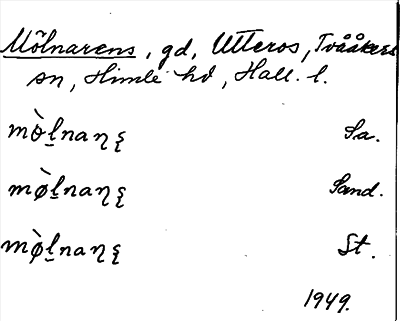 Mölnarens, gd, Utteros, Tvååkers
sn, Himle hd, Hall. l.
mòl̠naɳʂ Sa.
mø̀l̠naɳʂ Sand.
mø̀l̠naɳʂ St.
1949.